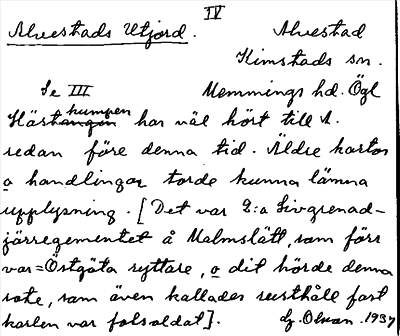 IV
Alvestads Utjord. Alvestad
Kimstads sn.
Se III Memmings hd. Ögl
Hästkumpen har väl hört till A.
redan före denna tid. Äldre kartor
o handlingar torde kunna lämna
upplysning. [Det var 2:a Livgrenad-
järregementet å Malmslätt, som förr
var = Östgöta ryttare, o dit hörde denna
rote, som även kallades rusthåll fast
karlen var fotsoldat]. Olson. 1937